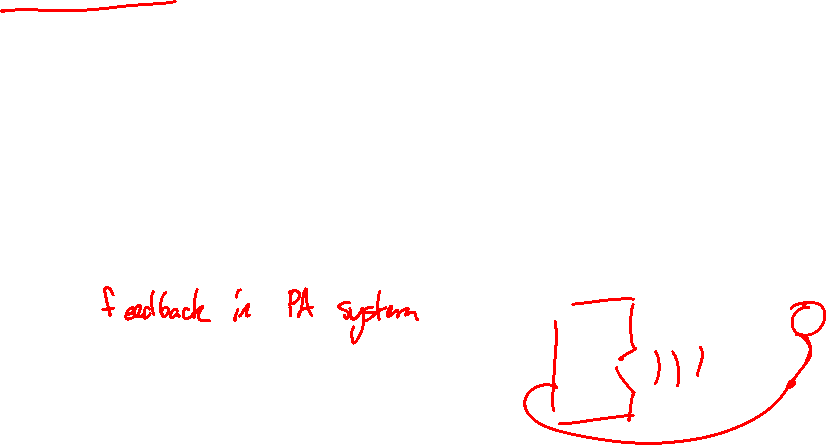 feedback in PA system